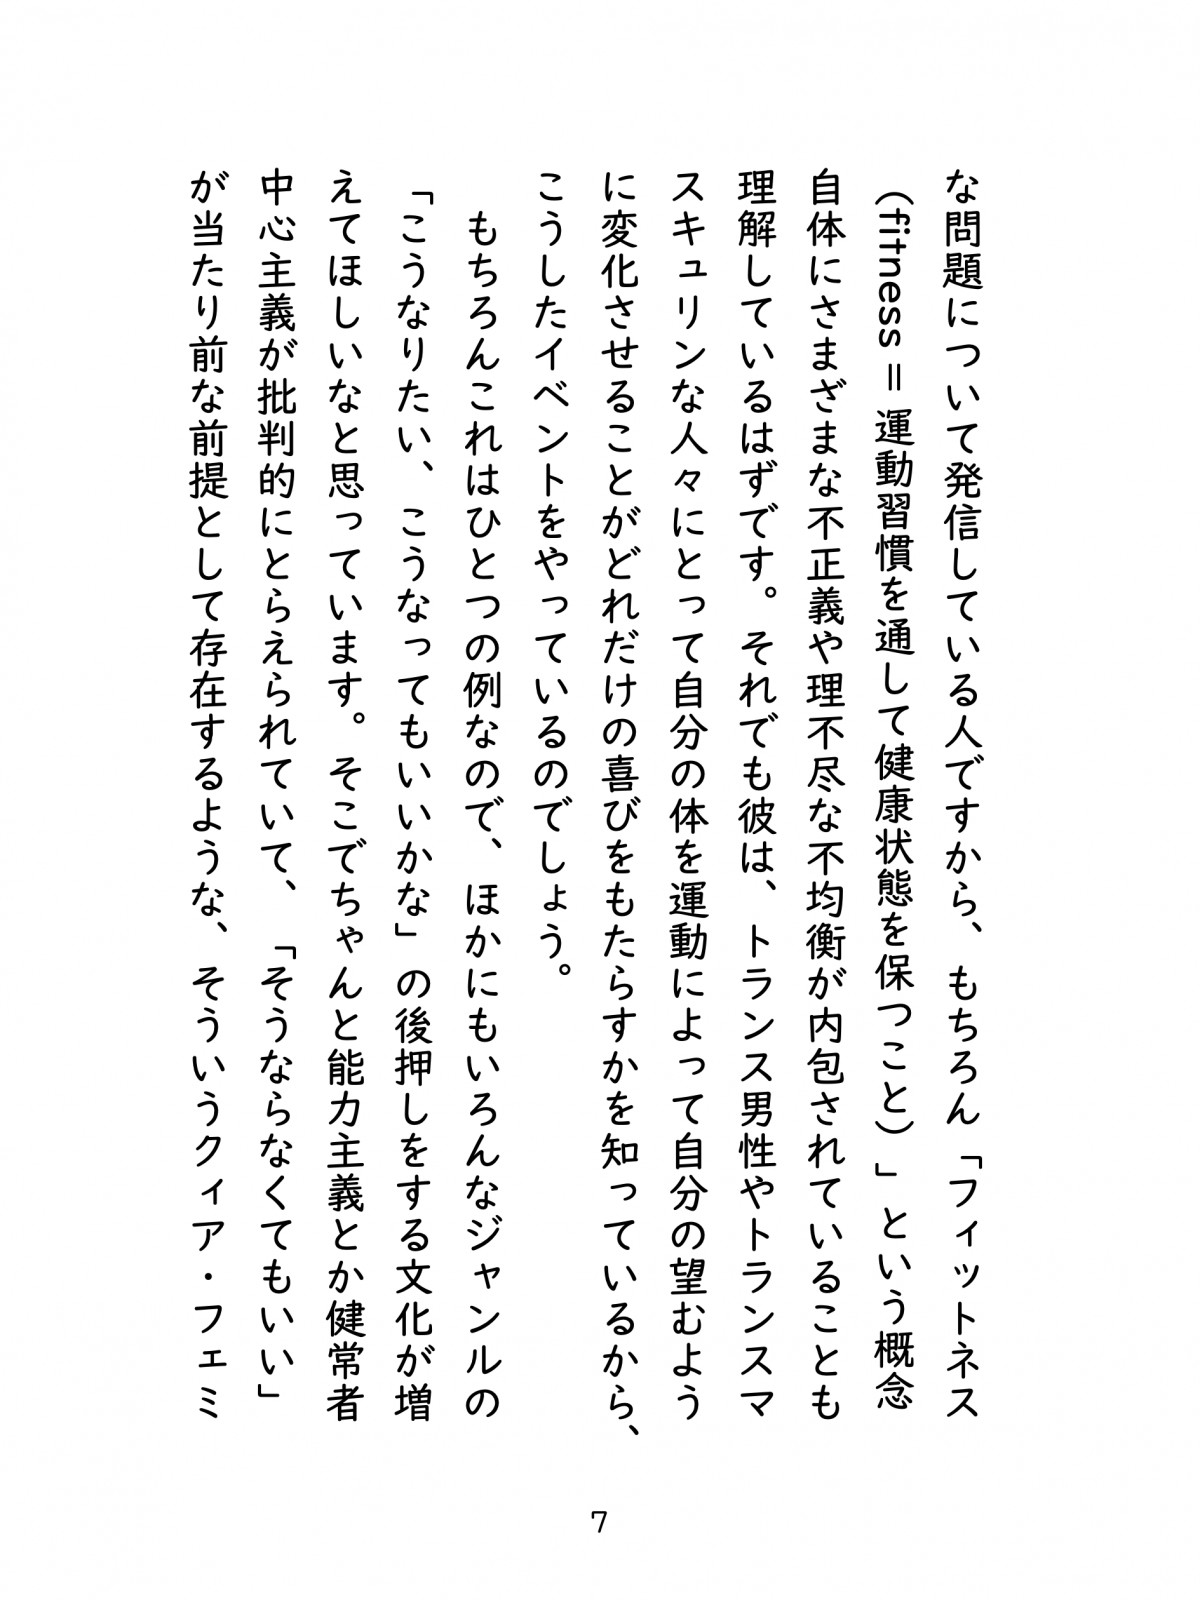 な問題について発信している人ですから、もちろん「フィットネス
（fitness＝運動習慣を通して健康状態を保つこと）」という概念
自体にさまざまな不正義や理不尽な不均衡が内包されていることも
理解しているはずです。それでも彼は、トランス男性やトランスマ
スキュリンな人々にとって自分の体を運動によって自分の望むよう
に変化させることがどれだけの喜びをもたらすかを知っているから、
こうしたイベントをやっているのでしょう。
もちろんこれはひとつの例なので、ほかにもいろんなジャンルの
「こうなりたい、こうなってもいいかな」の後押しをする文化が増
えてほしいなと思っています。そこでちゃんと能力主義とか健常者
中心主義が批判的にとらえられていて、「そうならなくてもいい」
が当たり前な前提として存在するような、そういうクィア・フェミ
7